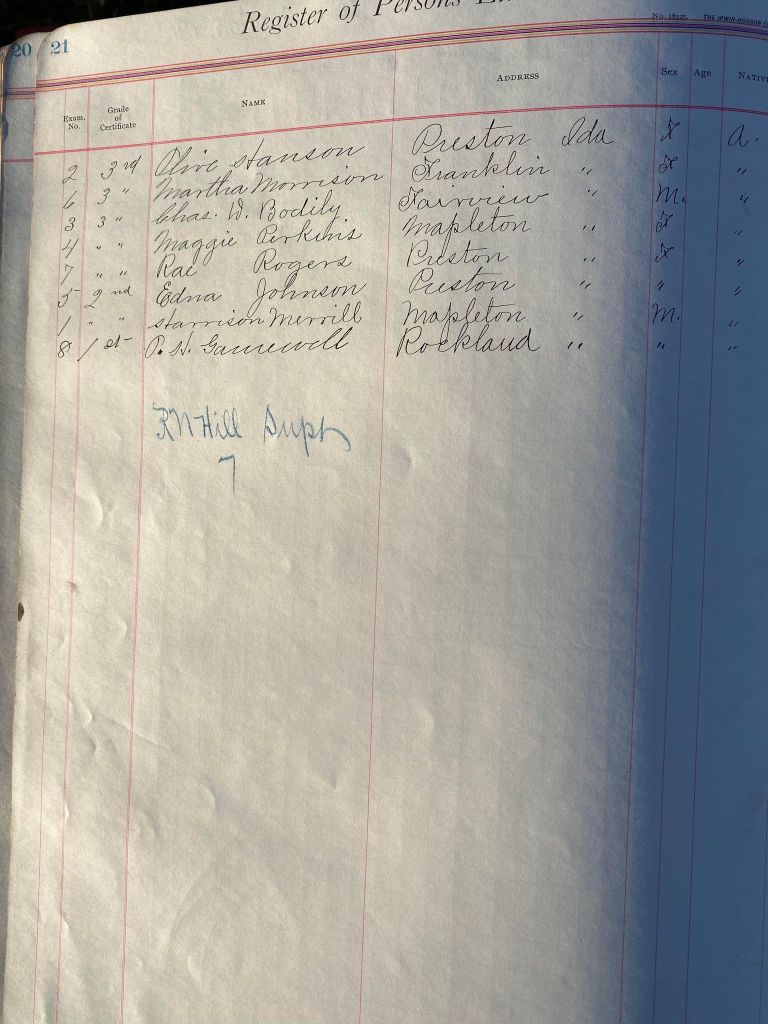 Register of Persons
20 21
No. 18225. THE IRWIN-HODSON
Exam. No. Grade of Certificate NAME ADDRESS Sex Age
2 3rd Olive Hanson Preston Ida F A.
6 3 " Martha Morrison Franklin " F "
3 3 " Chas. W. Bodily Fairview " M. "
4 " " Maggie Perkins Mapleton " F "
7 " " Rae Rogers Preston " F "
5 2nd Edna Johnson Preston " " "
1 " " Harrison Merrill Mapleton " M. "
8 1st P. H. Gamewell Rockland " " "
RN Hill Supt
7